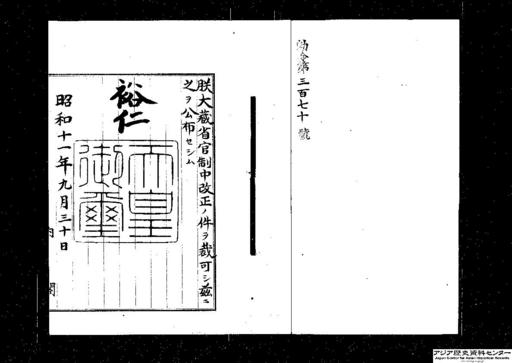 勅令第三百七十號
朕大藏省官制中改正ノ件ヲ裁可シ茲ニ
之ヲ公布セシム
裕仁
天皇御璽
昭和十一年九月三十日
内閣
アジア歴史資料センター
Japan Center for Asian Historical Records